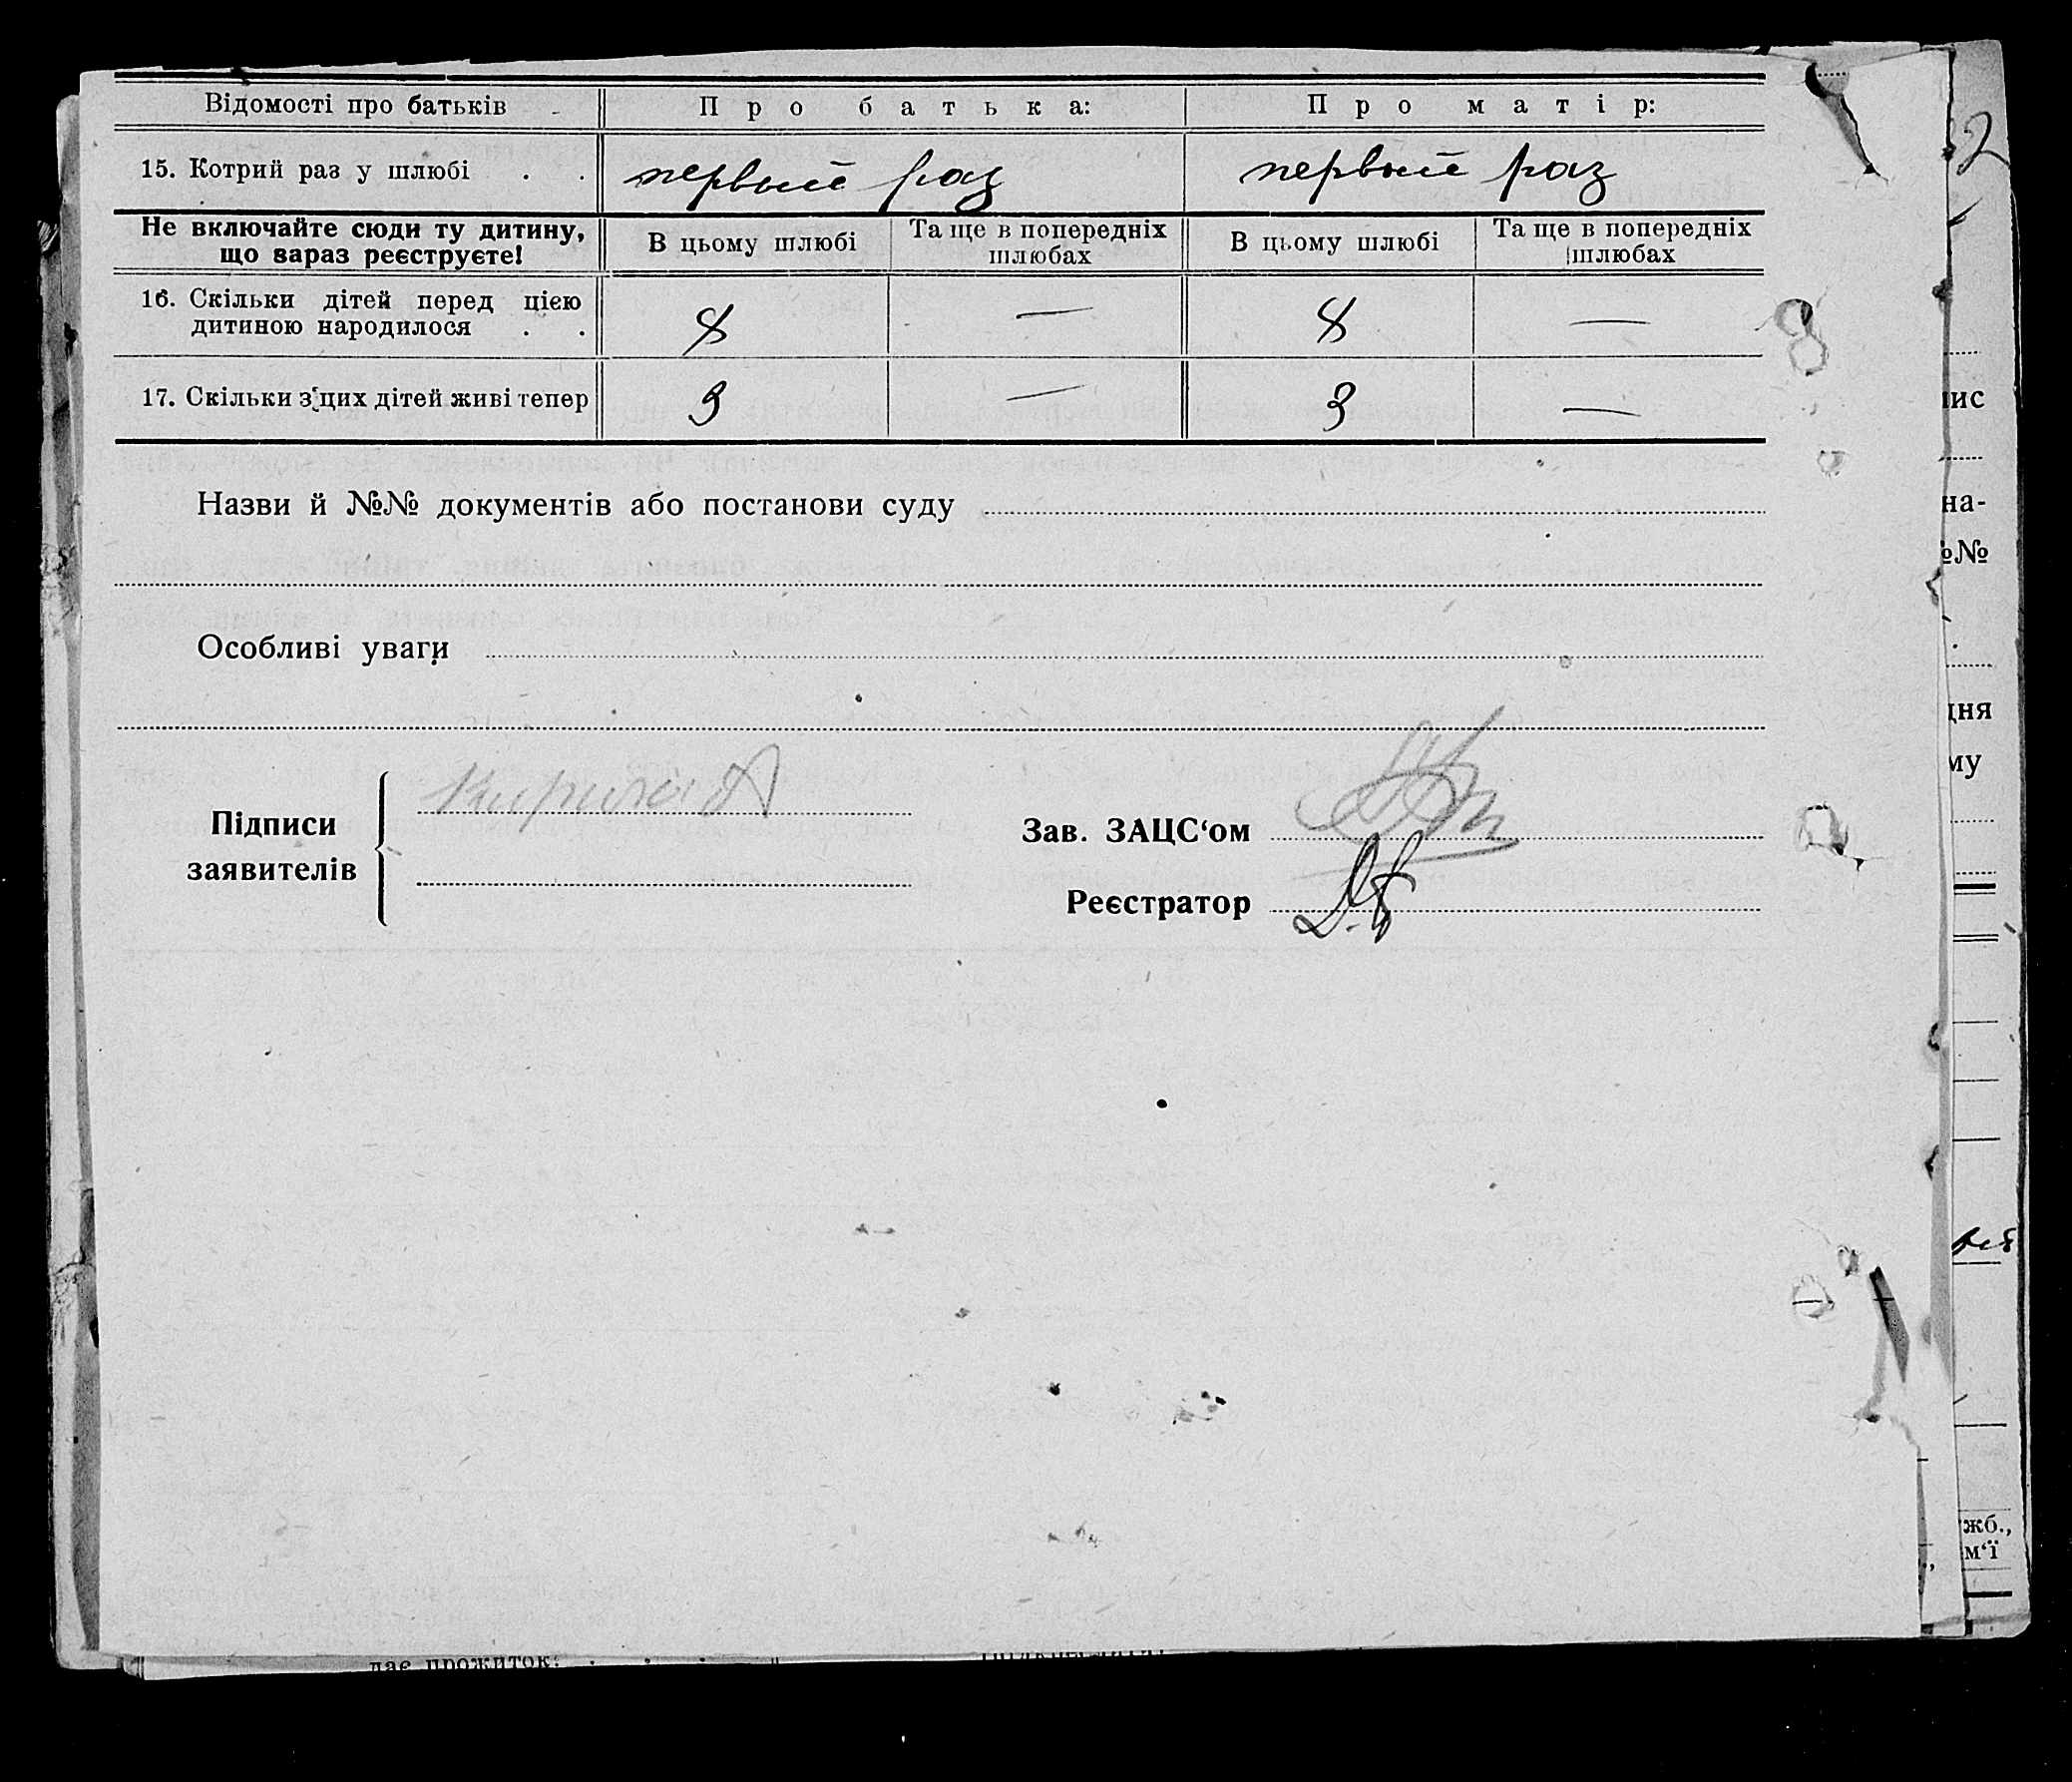 Відомості про батьків Про батька: Про матір:
15. Котрий раз у шлюбі . . первый раз первый раз
Не включайте сюди ту дитину, що зараз реєструєте! В цьому шлюбі Та ще в попередніх шлюбах В цьому шлюбі Та ще в попередніх шлюбах
16. Скільки дітей перед цією дитиною народилося . . 8 — 8 —
17. Скільки з цих дітей живі тепер 3 — 3 —
Назви й №№ документів або постанови суду
Особливі уваги
Підписи заявителів
Зав. ЗАЦС‘ом
Реєстратор
2
ис
на-
№
дня
му
жб.,
м‘ї
дає прожиток: